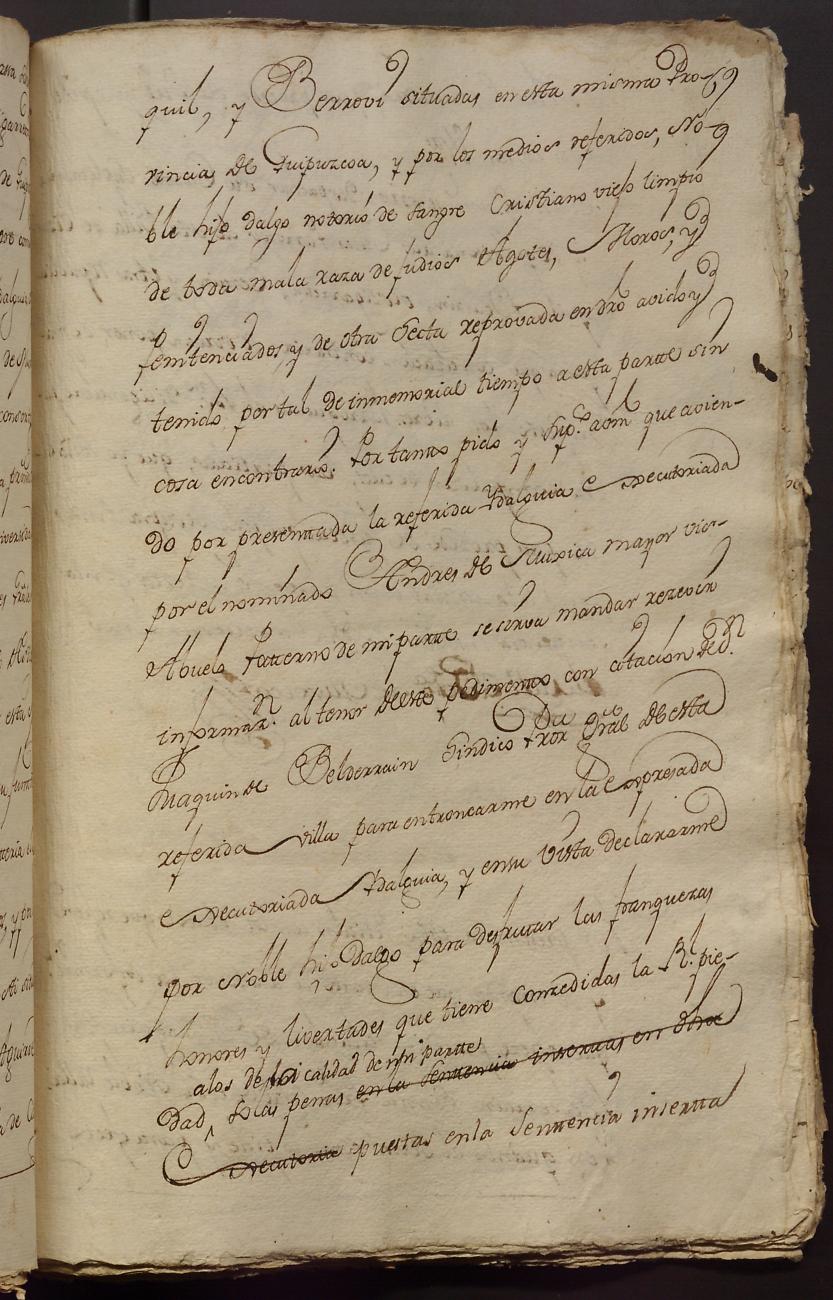 quil, y Berrovi situadas en esta misma Pro-
vincia, de Guipuzcoa, y por los medios referidos, No-
ble hijo dalgo notorio de sangre Cristiano viejo limpio
de toda mala raza de judios Agotes, Moros, y
Penitenciados, y de otra Secta reprovada en dro avido y
tenido por tal de inmemorial tiempo a esta partte sin
cosa en contrario. Por tantto pido y Sup.co a vm que avien-
do por presenttada la referida Ydalguia executoriada
por el nominado Andres de Muxica mayor vis-
Abuelo Patterno de mi partte se sirva mandar rezevir
informaz.n al tenor de este pedimentto con citacion de d.n
Juaquin de Belderrain Sindico Pror Gral de esta
referida villa para entroncarme en la expresada
executoriada Ydalguia, y en su vista declararme
por Noble hijo Dalgo para desfrutar las franquezas
honores y livertades que tiene conzedidas la R.l pie-
a los de la calidad de mi partte
dad, so las penas en la Senttencia inserttas en dha
Executoria puesttas en la Senttencia insertta